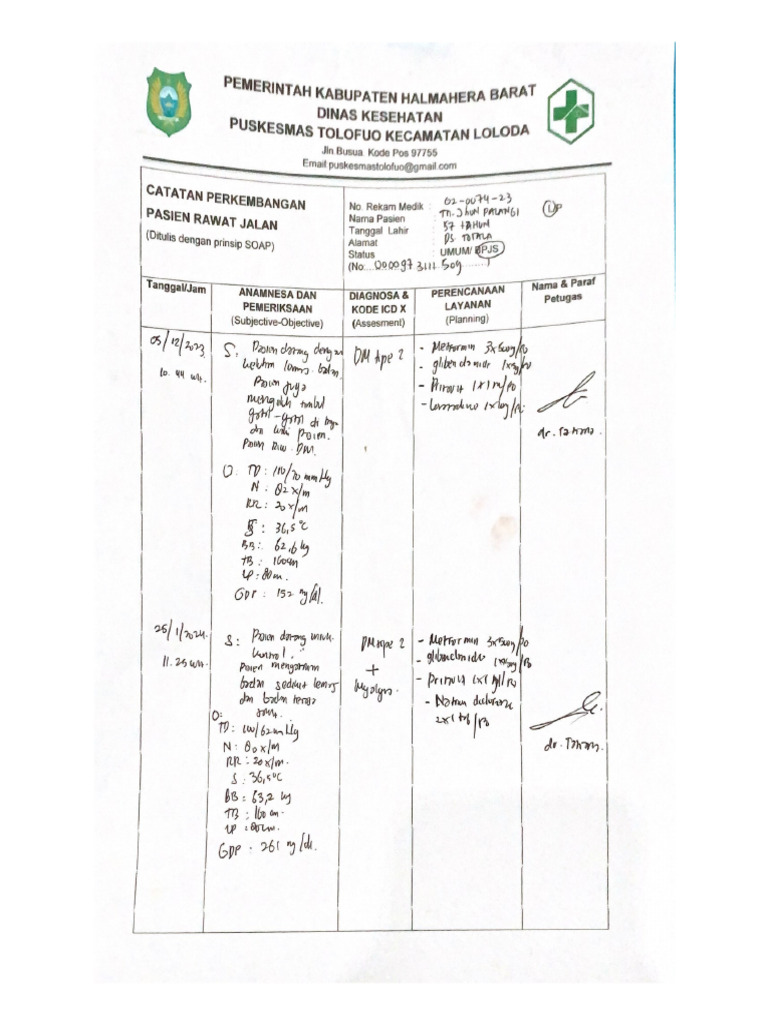 PEMERINTAH KABUPATEN HALMAHERA BARAT
DINAS KESEHATAN
PUSKESMAS TOLOFUO KECAMATAN LOLODA
Jln.Busua Kode Pos 97755
Email:puskesmastolofuo@gmail.com
CATATAN PERKEMBANGAN
PASIEN RAWAT JALAN
(Ditulis dengan prinsip SOAP)
No. Rekam Medik : 02-0074-23
Nama Pasien : Tn. Jhon PALANGI L/P
Tanggal Lahir : 57 TAHUN
Alamat : DS. TOTALA
Status : UMUM/ BPJS
(No: 0000973111509)
Tanggal/Jam
ANAMNESA DAN
PEMERIKSAAN
(Subjective-Objective)
DIAGNOSA &
KODE ICD X
(Assesment)
PERENCANAAN
LAYANAN
(Planning)
Nama & Paraf
Petugas
05/12/2023
10.44 wit.
S: Pasien datang dengan
keluhan lemas badan.
Pasien juga
mengeluh timbul
gatal-gatal di
dan kaki pasien.
Pasien Riw. DM.
O. TD: 110/70 mmHg
N : 82 x/m
RR: 20 x/m
S : 36,5°C
BB: 62,6 kg
TB: 160cm
LP: 80 m.
GDP : 152 mg/dl.
DM tipe 2
- Metformin 3x500mg/PO
- glibenclamide 1x5mg/PO
- 1x1 /PO
- 1x /PO
dr. Tahma.
25/1/2024.
11.25 wit.
S: Pasien datang untuk
kontrol.
Pasien mengatakan
badan sedikit lemas
dan badan terasa
O:
TD: 100/62 mmHg
N: 80 x/m
RR: 20x/m.
S: 36,5°C
BB: 63,2 kg
TB: 160 cm.
LP: 80cm.
GDP : 261 mg/dl.
DM tipe 2
+
Myalgia.
- Metformin 3x500mg/PO
- glibenclamide 1x5mg/PO
- 1x1 /PO
- Natrium diclofenac
2x1 tab/PO
dr. Tahma.